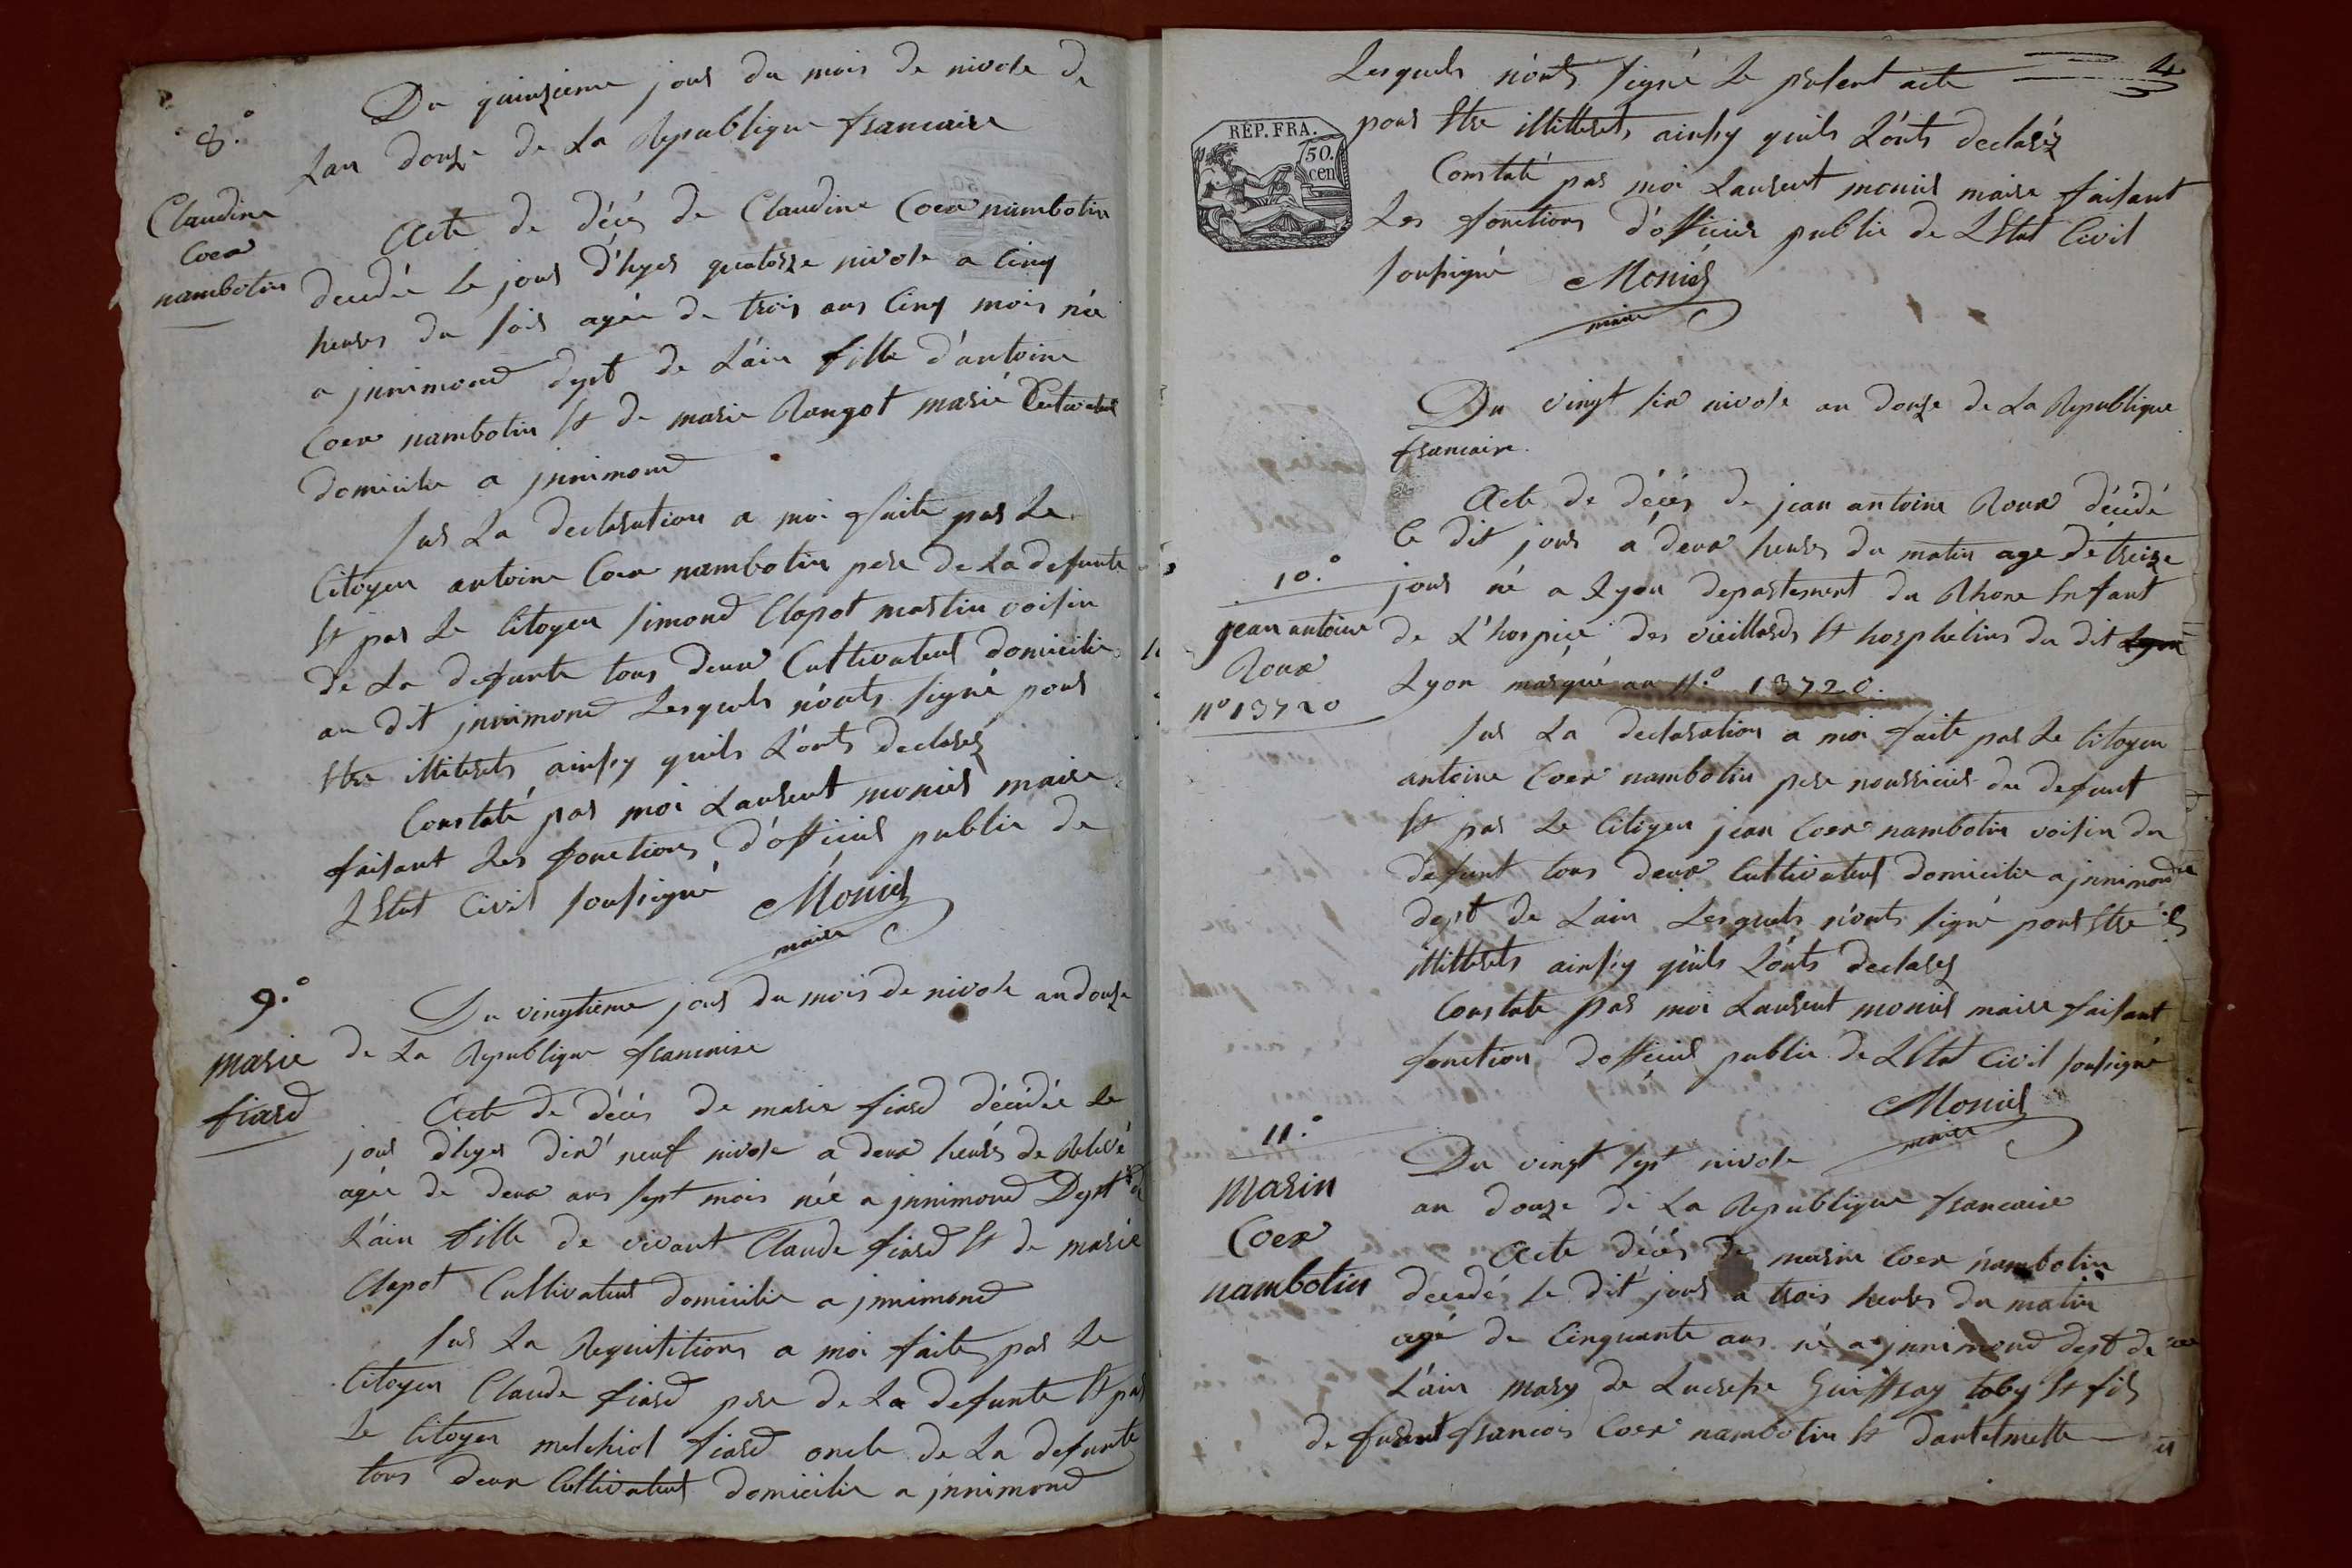 8.°
Claudine
Coer
nambotin
Du quinzieme jour du mois de nivose de
Lan douze de La Republique francaise
Acte de décés de Claudine Coer nambotin
decedée le jour d'hyer quatorze nivose a Cinq
heures du soir agée de trois ans Cinq mois née
a jnnimond dept de L'ain fille d'antoine
Coer nambotin Et de marie Rougot marié Cultivateur
domicilie a jnnimond
Sur La declaration a moi faite par Le
Citoyen antoine Coer nambotin pere de La defunte
Et par Le Citoyen simond Clapot martin voisin
de La defunte tous deux Cultivateur domicilie
au dit jnnimond Lesquels n'onts signé pour
Etre illiterets ainsy quils L'onts declarez
Constaté par moi Laurent monier maire
faisant Les fonctions d'officier public de
L'Etat Civil soussigné Monier
maire
9.°
marie
fiard
Du vingtieme jour du mois de nivose an douze
de La Republique francaise
Acte de décés de marie fiard décédée Le
jour d'hyer dix neuf nivose a deux heures de Relevé
agée de deux ans sept mois née a jnnimond Dept de
L'ain fille de vivant Claude fiard Et de marie
Clapot Cultivateur domicilie a jnnimond
Sur La Requisitions a moi faite par Le
Citoyen Claude fiard pere de La defunte Et par
Le Citoyen melchior fiard oncle de La defunte
tous deux Cultivateur domicilie a jnnimond
4
Lesquels n'onts signé Le present acte
REP. FRA.
50.
cen
pour Etre illitterets ainsy quils L'onts declaréz
Constaté par moi Laurent monier maire faisant
Les fonctions d'officier public de L'Etat Civil
soussigné Monier
maire
Du vingt six nivose an douze de La Republique
francaise.
10.°
jean antoine
Roux
n° 13720
Acte de décés de jean antoine Roux décédé
Ce dit jour a deux heures du matin age de treize
jour né a Lyon departement du Rhone Enfant
de L'hospice des vieillards Et horphelins du dit Lyon
Lyon marqué au N.° 13720.
Sur La declaration a moi faite par Le Citoyen
antoine Coer nambotin pere nourricier du defunt
Et par Le Citoyen jean Coer nambotin voisin du
defunt tous deux Cultivateur domicilie a jnnimond
dept de Lain Lesquels n'onts signé pour Etre
illitterets ainsiy quils L'onts declarez
Constate par moi Laurent monier maire faisant
fonction d'officier public de L'Etat Civil soussigné
Monier
maire
11.°
marin
Coer
nambotin
Du vingt sept nivose
an douze de La Republique francaise
Acte décés de marin Coer nambotin
decedé Le dit jour a trois heures du matin
agé de Cinquante ans né a jnnimond dept de
L'ain mary de Lucresse toby Et fils
de francois Coer nambotin Et